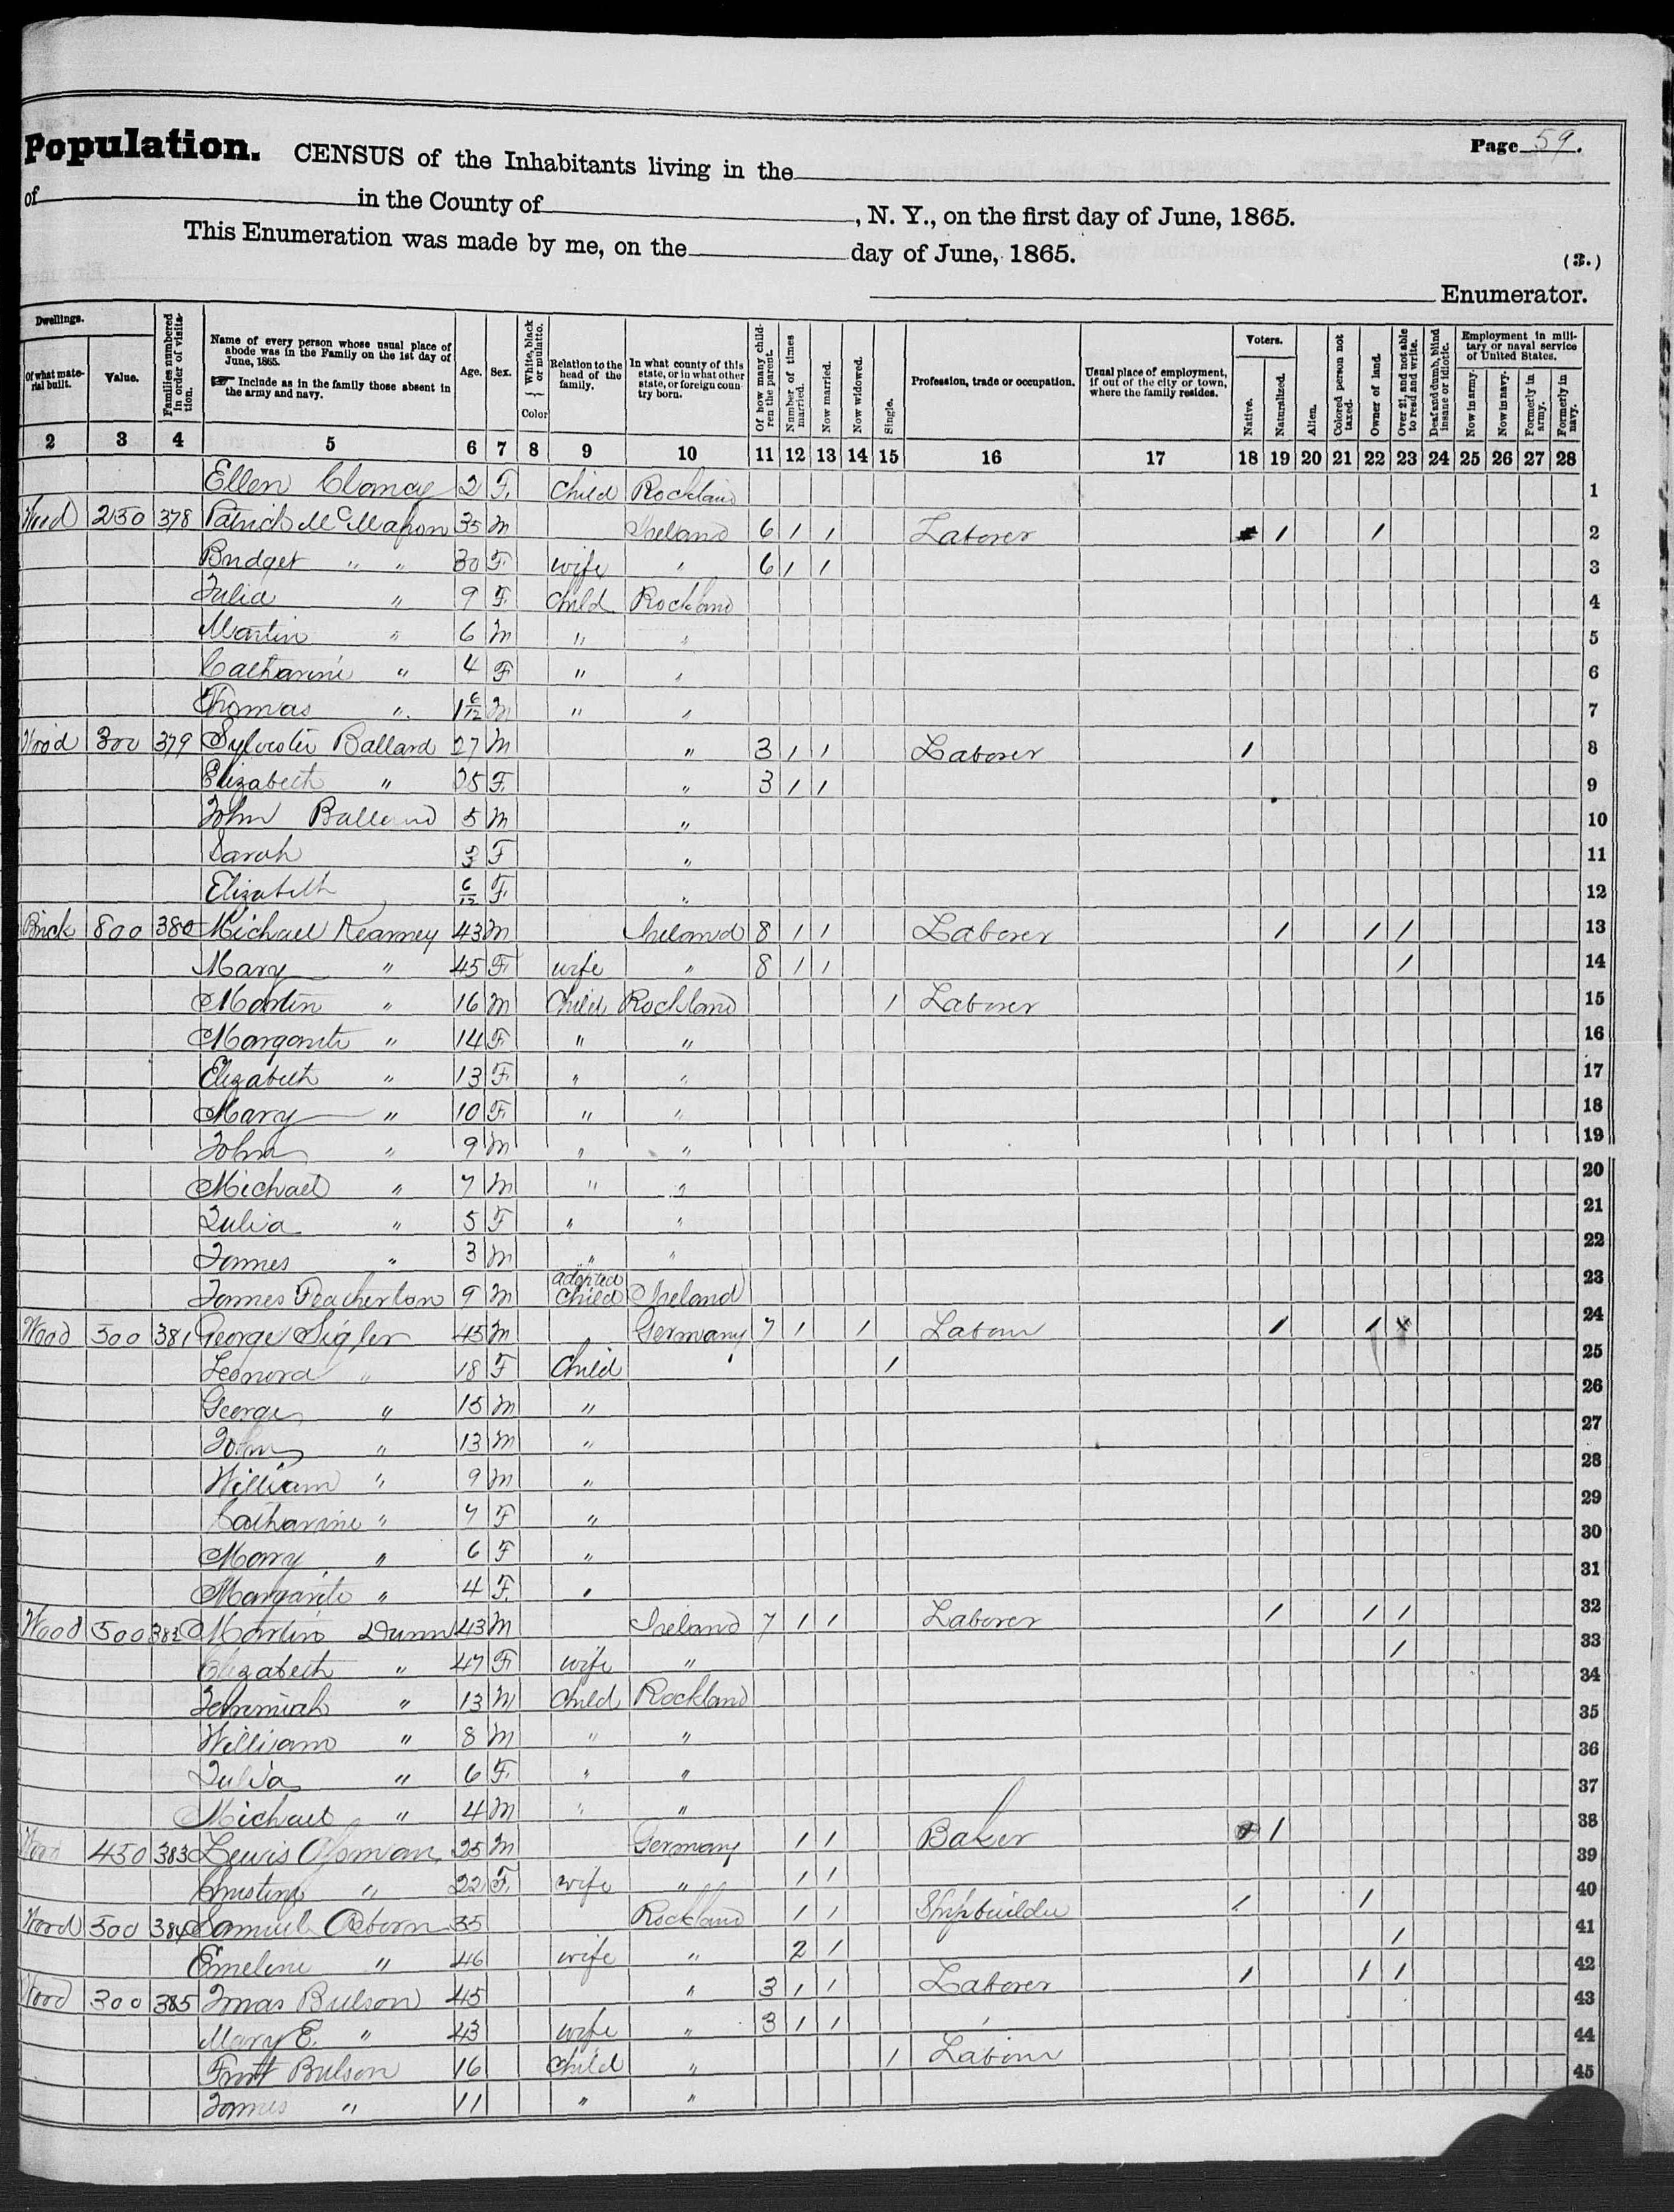 Population. CENSUS of the Inhabitants living in the Page 59.
of in the County of , N. Y., on the first day of June, 1865.
This Enumeration was made by me, on the day of June, 1865. (3.)
Enumerator.
Dwellings. Of what material built. Value. Families numbered in order of visitation. Name of every person whose usual place of abode was in the Family on the 1st day of June, 1865. ☞ Include as in the family those absent in the army and navy. Age. Sex. White, black or mulatto. } Color Relation to the head of the family. In what county of this state, or in what other state, or foreign country born. Of how many children the parent. Number of times married. Now married. Now widowed. Single. Profession, trade or occupation. Usual place of employment, if out of the city or town, where the family resides. Voters. Native. Naturalized. Alien. Colored person not taxed. Owner of land. Over 21, and not able to read and write. Deaf and dumb, blind insane or idiotic. Employment in military or naval service of United States. Now in army. Now in navy. Formerly in army. Formerly in navy.
2 3 4 5 6 7 8 9 10 11 12 13 14 15 16 17 18 19 20 21 22 23 24 25 26 27 28
Ellen 2 F. Child Rockland 1
Wood 250 378 Patrick McMahon 35 M Ireland 6 1 1 Laborer 1 1 2
Bridget " " 30 F. wife " 6 1 1 3
Julia " 9 F. Child Rockland 4
Martin " 6 M " " 5
Catharine " 4 F " " 6
Thomas " 1 6/12 M " " 7
Wood 300 379 Sylvester Ballard 27 M " 3 1 1 Laborer 1 8
Elizabeth " 25 F. " 3 1 1 9
John Ballard 5 M " 10
Sarah 3 F " 11
Elizabeth 6/12 F. " 12
Brick 800 380 Michael Kearney 43 M Ireland 8 1 1 Laborer 1 1 1 13
Mary " 45 F. wife " 8 1 1 1 14
Martin " 16 M Child Rockland 1 Laborer 15
Margarete " 14 F. " " 16
Elizabeth " 13 F. " " 17
Mary " 10 F. " " 18
John " 9 M " " 19
Michael " 7 M " " 20
Julia " 5 F " " 21
James " 3 M " " 22
James Featherton 9 M adopted Child Ireland 23
Wood 300 381 George Sigler 45 M Germany 7 1 1 Labour 1 1 x 24
Leonora " 18 F Child ' 1 25
George " 15 M " 26
John " 13 M " 27
William " 9 M " 28
Catharine " 7 F " 29
Mary " 6 F " 30
Margarete " 4 F. " 31
Wood 500 382 Martin Dunn 43 M Ireland 7 1 1 Laborer 1 1 1 32
Elizabeth " 47 F. wife " 1 33
Jeremiah " 13 M Child Rockland 34
William " 8 M " " 35
Julia " 6 F. " " 36
Michael " 4 M " " 37
Wood 450 383 Lewis 25 M Germany 1 1 Baker 1 38
Christina " 22 F. wife " 1 1 39
Wood 500 384 Samuel Osborn 35 Rockland 1 1 Shipbuilder 1 1 40
Emeline " 46 wife " 2 1 1 41
Wood 300 385 Bulson 45 " 3 1 1 Laborer 1 1 1 42
Mary E. " 43 wife " 3 1 1 43
Bulson 16 Child " 1 Labour 44
James " 11 " " 45